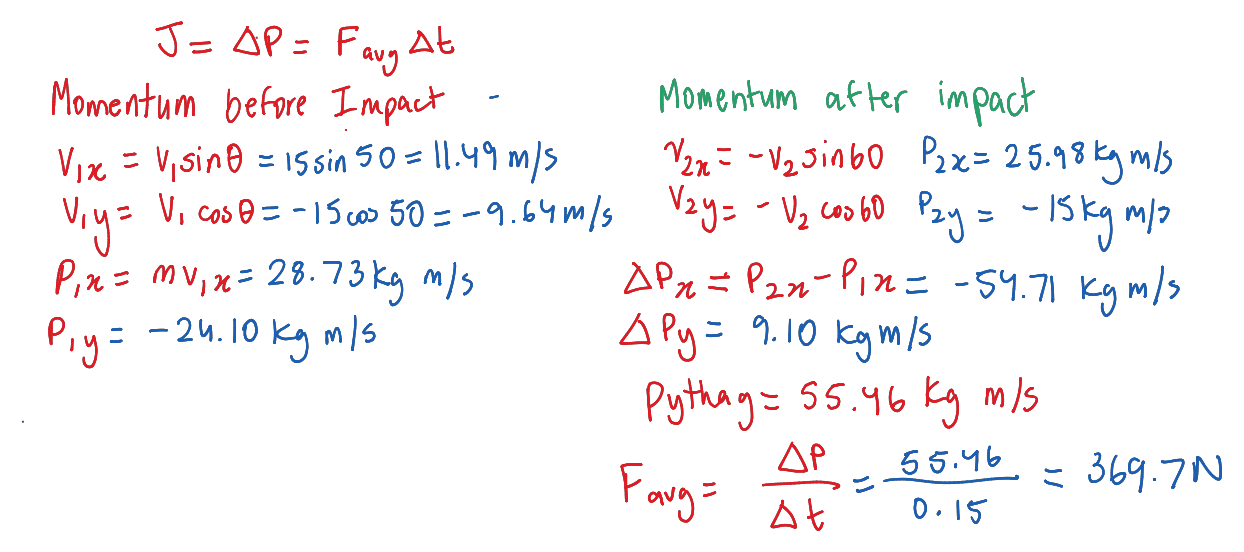 J = ΔP = F_avg Δt
Momentum before Impact -
V₁x = V₁sinθ = 15 sin 50 = 11.49 m/s
V₁y = V₁ cosθ = -15 cos 50 = -9.64 m/s
P₁x = mv₁x = 28.73 kg m/s
P₁y = -24.10 kg m/s
Momentum after impact
V₂x = -V₂ sin60 P₂x = 25.98 kg m/s
V₂y = -V₂ cos60 P₂y = -15 kg m/s
ΔPx = P₂x - P₁x = -54.71 kg m/s
ΔPy = 9.10 kg m/s
Pythag = 55.46 kg m/s
F_avg = ΔP/Δt = 55.46/0.15 = 369.7N